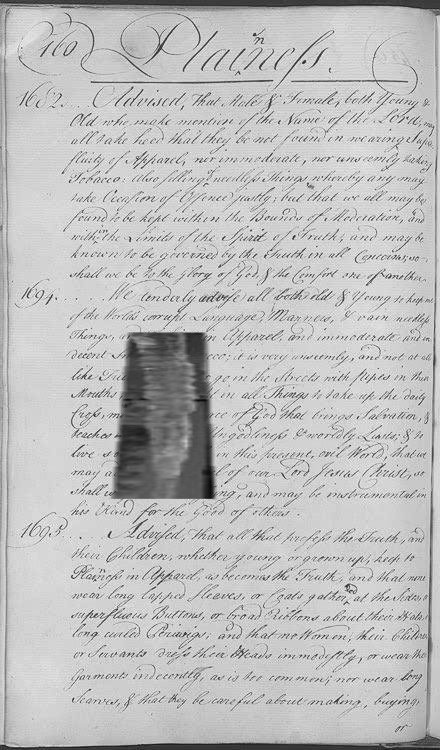 160 Plainness.
1682... Advised, That Male & Female, both Young &
Old who make mention of the Name of the Lord, may
all take heed that they be not found in wearing Super
fluity of Apparel, nor immoderate, nor unseemly taking
Tobacco: Also selling needless Things whereby any may
take Occasion of Offence justly; but that we all may be
found to be kept within the Bounds of Moderation, and
within the Limits of the Spirit of Truth; and may be
known to be governed by the Truth in all Concerns, so
shall we be to the Glory of God, & the Comfort one of another.
1694.... We tenderly advise all both old & Young to keep out
of the Worlds corrupt Language, Manners, & vain needless
Things, and in Apparel; and immoderate and in
decent; it is very unseemly, and not at all
like go in the Streets with pipes in their
Mouths in all Things to take up the daily
Cross, of God that brings Salvation, &
teaches Ungodliness & worldly Lusts; & to
live in this present, evil World, that we
may of our Lord Jesus Christ, so
shall and may be instrumental in
his Hand for the Good of others.
1695... Advised, that all that profess the Truth, and
their Children, whether young or grown up, keep to
Plainness in Apparel, as becomes the Truth, and that none
wear long lapped Sleeves, or Coats gathered at the Sides, or
superfluous Buttons, or broad Ribbons about their Hats, or
long curled Periwigs; and that no Women, their Children
or Servants dress their Heads immodestly, or wear their
Garments indecently, as is too common; nor wear long
Scarves, & that they be careful about making, buying,
or